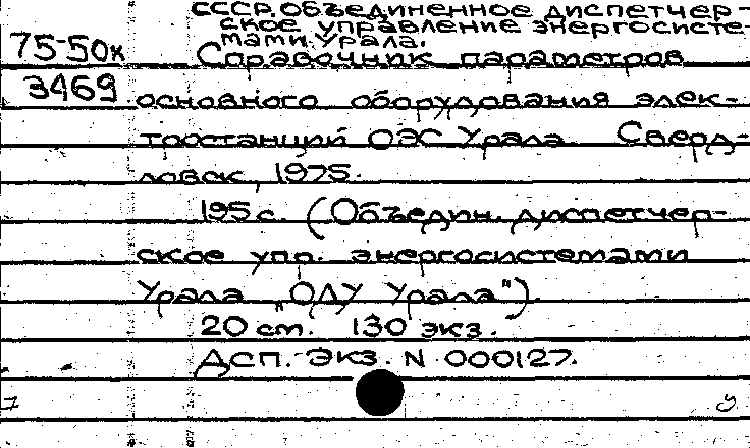 СССР. Объединенное диспетчер-
ское управление энергосисте-
мами Урала.
75-50к Справочник параметров
3469 основного оборудования элек-
тростанций ОЭС Урала Сверд-
ловск, 1975.
195 с. (Объедин. диспетчер-
ское упр. энергосистемами
Урала „ОДУ Урала").
20 см. 130 экз.
ДСП. Экз. N 000127.
1 У